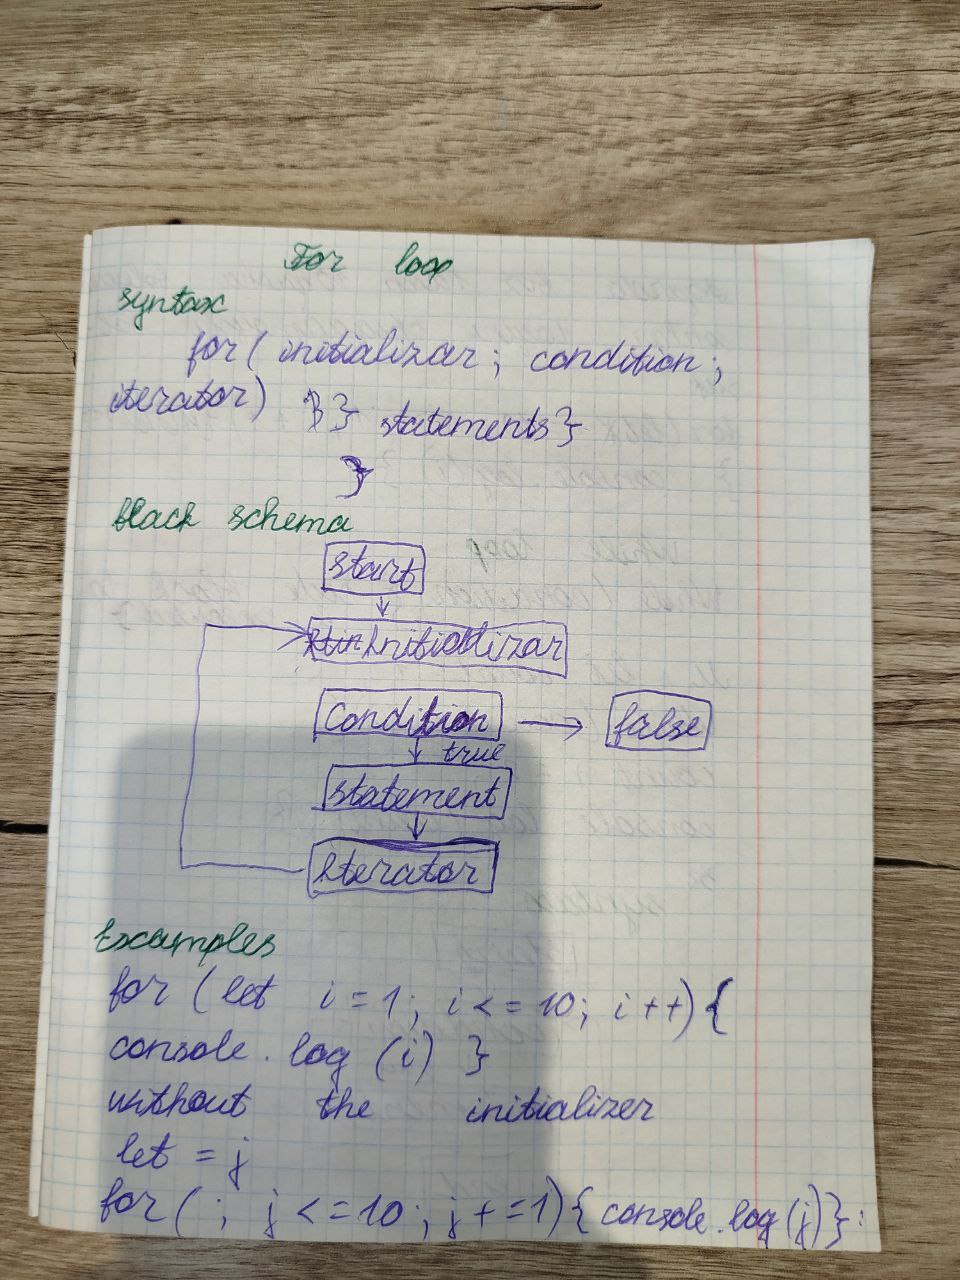 For loop
syntax
for ( initializar ; condition ;
iterator) }} statements}
}
black schema
start
Initializar
condition
false
true
statement
Iterator
Examples
for ( let i = 1 ; i <= 10 ; i ++) {
console . log (i) }
without the initializer
let = j
for ( ; j <= 10 ; j += 1) { console . log (j)} :